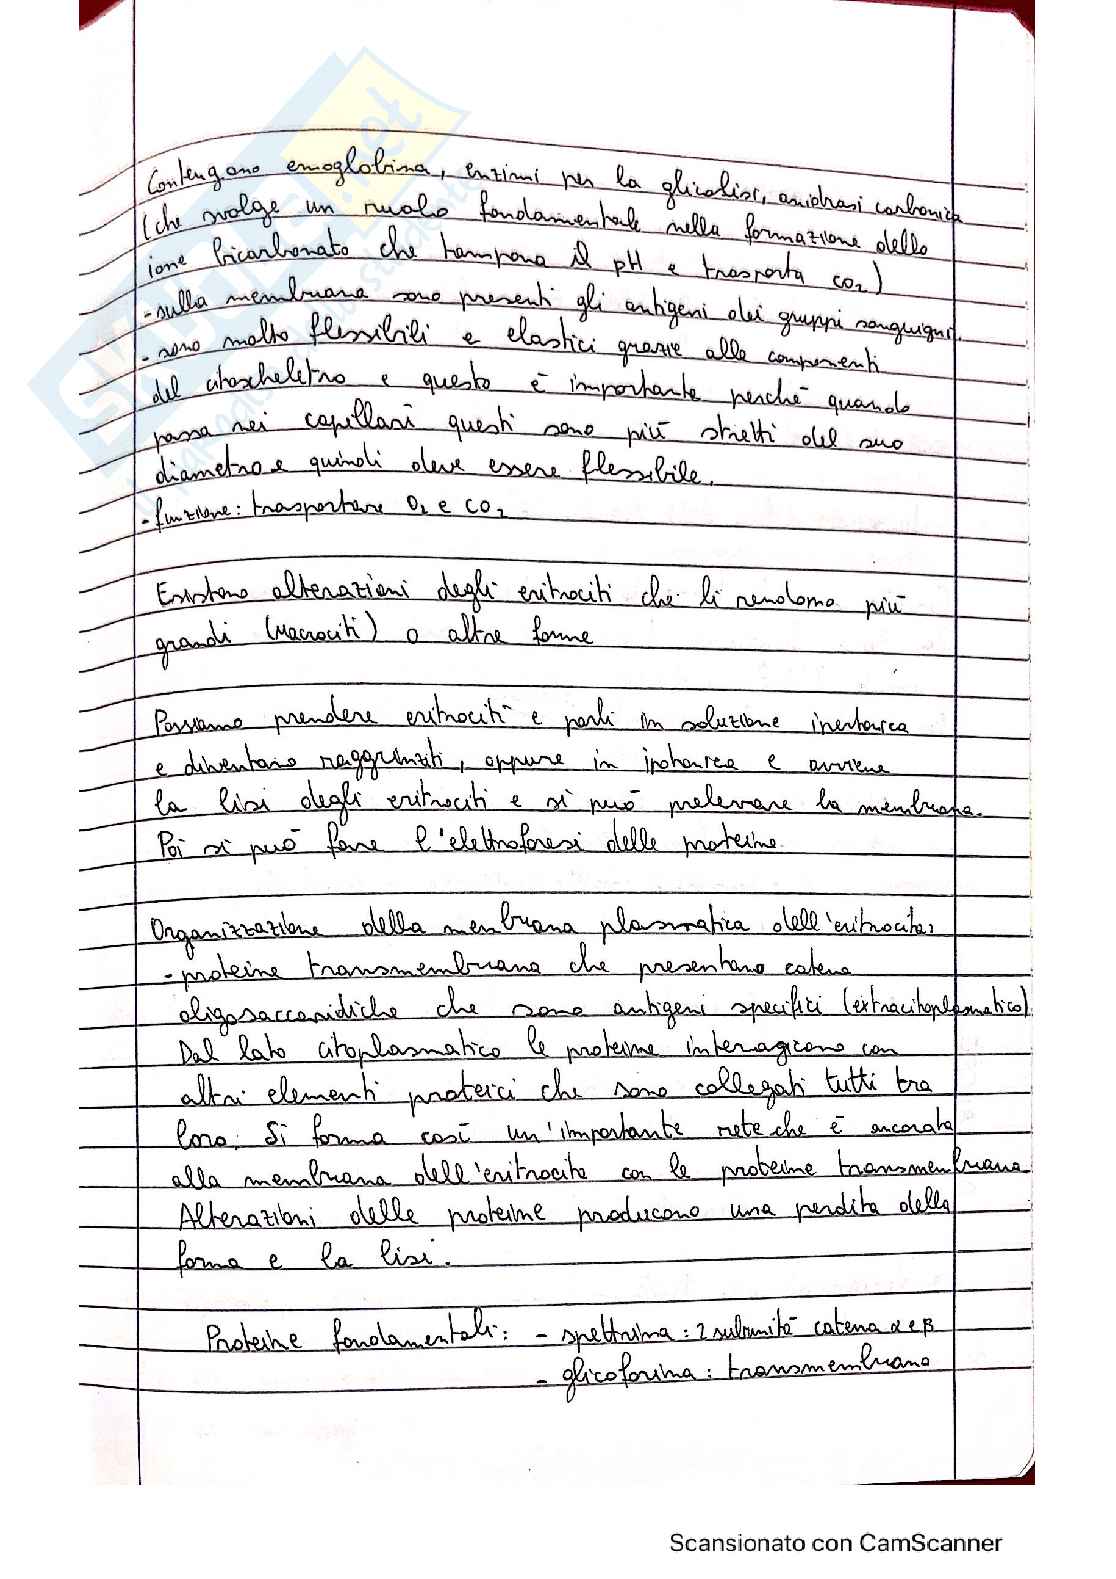 Contengono emoglobina, enzimi per la glicolisi, anidrasi carbonica
(che svolge un ruolo fondamentale nella formazione dello
ione bicarbonato che tampona il pH e trasporta CO2)
- sulla membrana sono presenti gli antigeni dei gruppi sanguigni.
- sono molto flessibili e elastici grazie alle componenti
del citoscheletro e questo è importante perchè quando
passa nei capillari questi sono più stretti del suo
diametro e quindi deve essere flessibile.
- funzione: trasportare O2 e CO2
Esistono alterazioni degli eritrociti che li rendono più
grandi (Macrociti) o altre forme
Possiamo prendere eritrociti e porli in soluzione ipertonica
e diventano raggrinziti, oppure in ipotonica e avviene
la lisi degli eritrociti e si può prelevare la membrana.
Poi si può fare l'elettroforesi delle proteine.
Organizzazione della membrana plasmatica dell'eritrocita:
- proteine transmembrana che presentano catene
oligosaccaridiche che sono antigeni specifici (extracitoplasmatico).
Dal lato citoplasmatico le proteine interagiscono con
altri elementi proteici che sono collegati tutti tra
loro. Si forma così un'importante rete che è ancorata
alla membrana dell'eritrocita con le proteine transmembrana
Alterazioni delle proteine producono una perdita della
forma e la lisi.
Proteine fondamentali: - spettrina: 2 subunità catena α e β
- glicoforina: transmembrana
SKUOLA.net
Scansionato con CamScanner